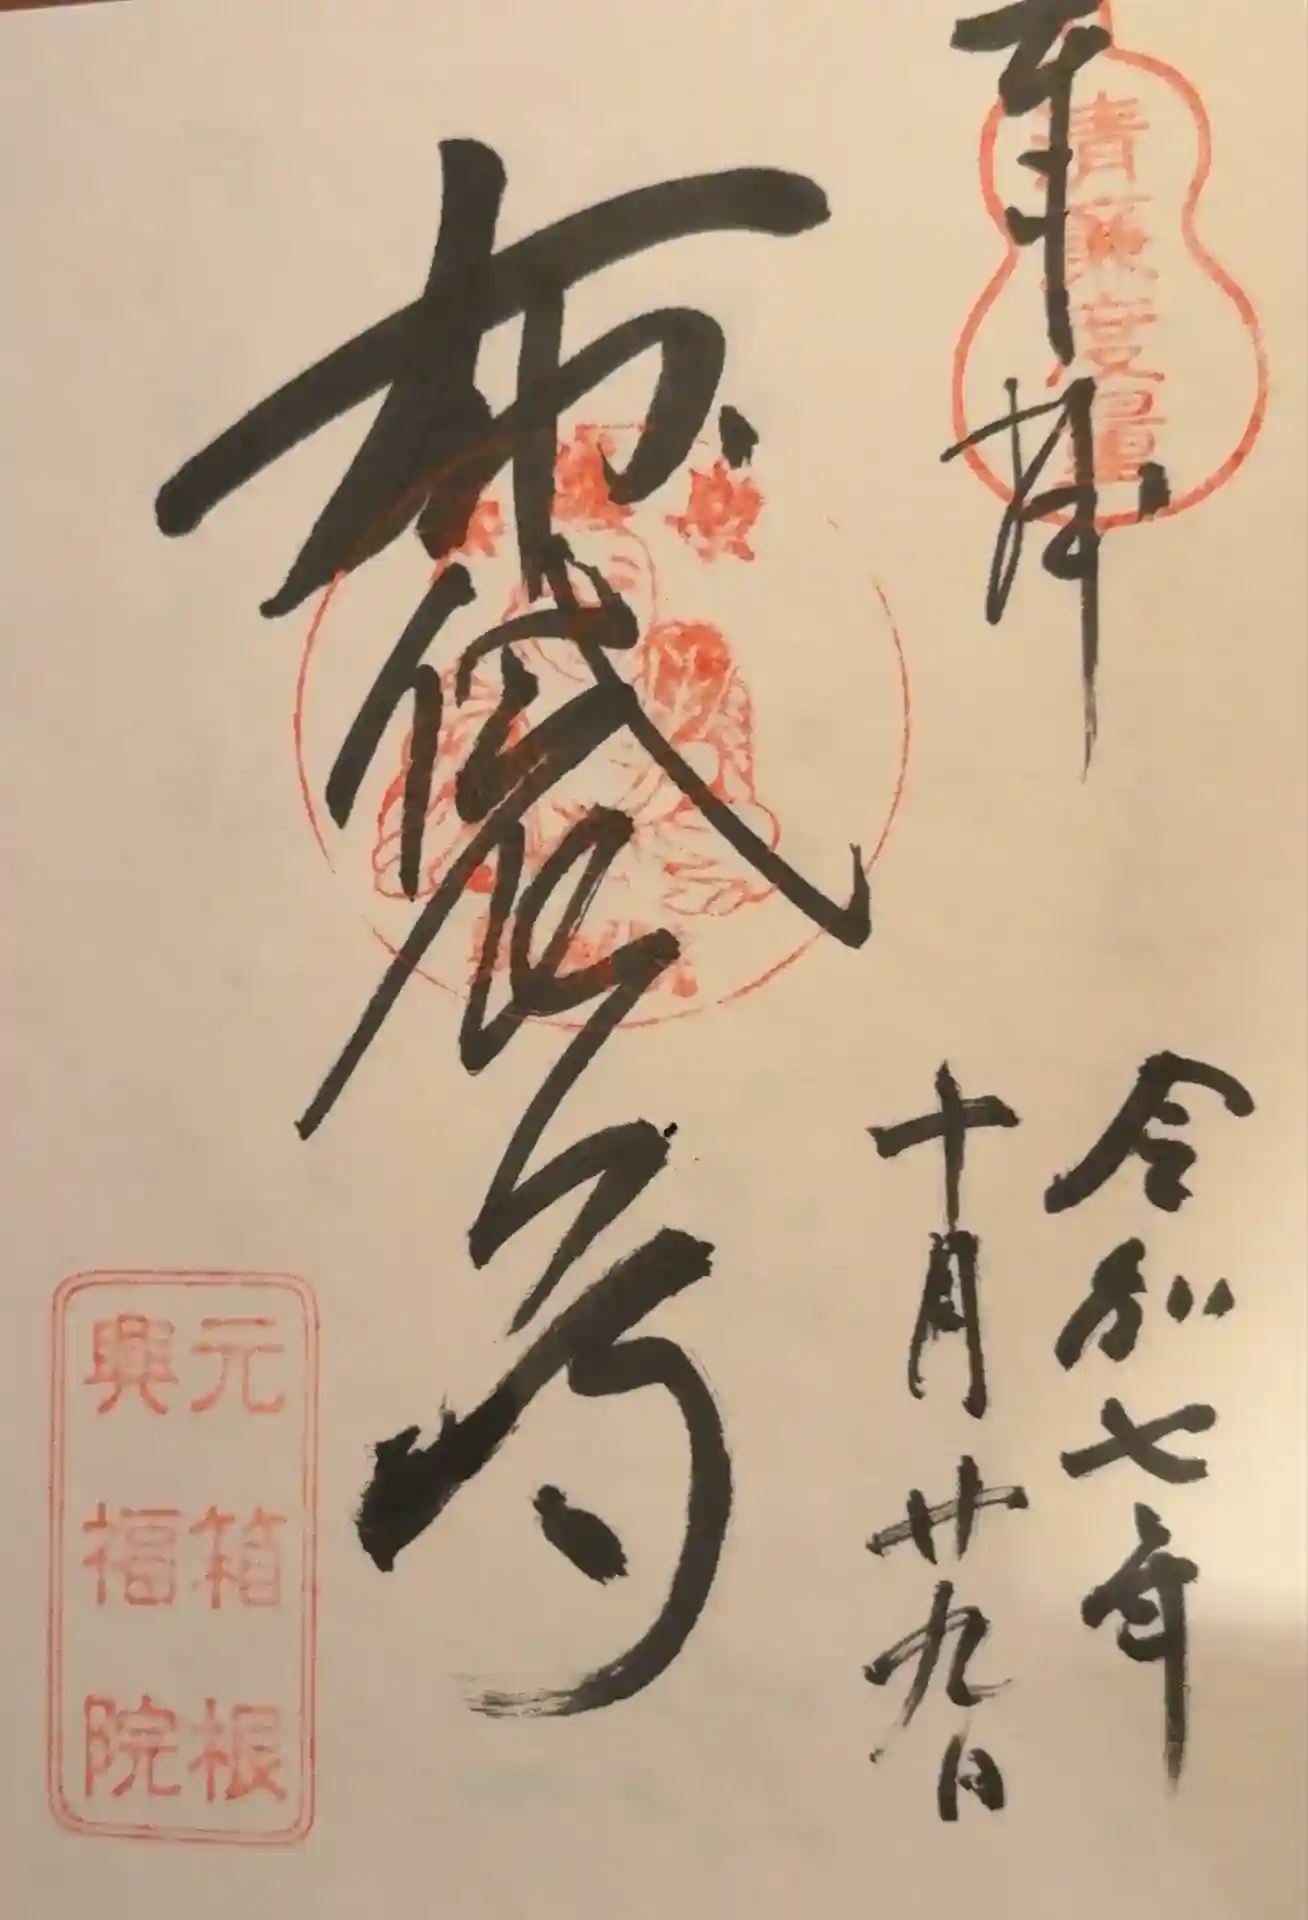 奉拝
清廉度量
令和七年
十月廿九日
布袋尊
元箱根
興福院